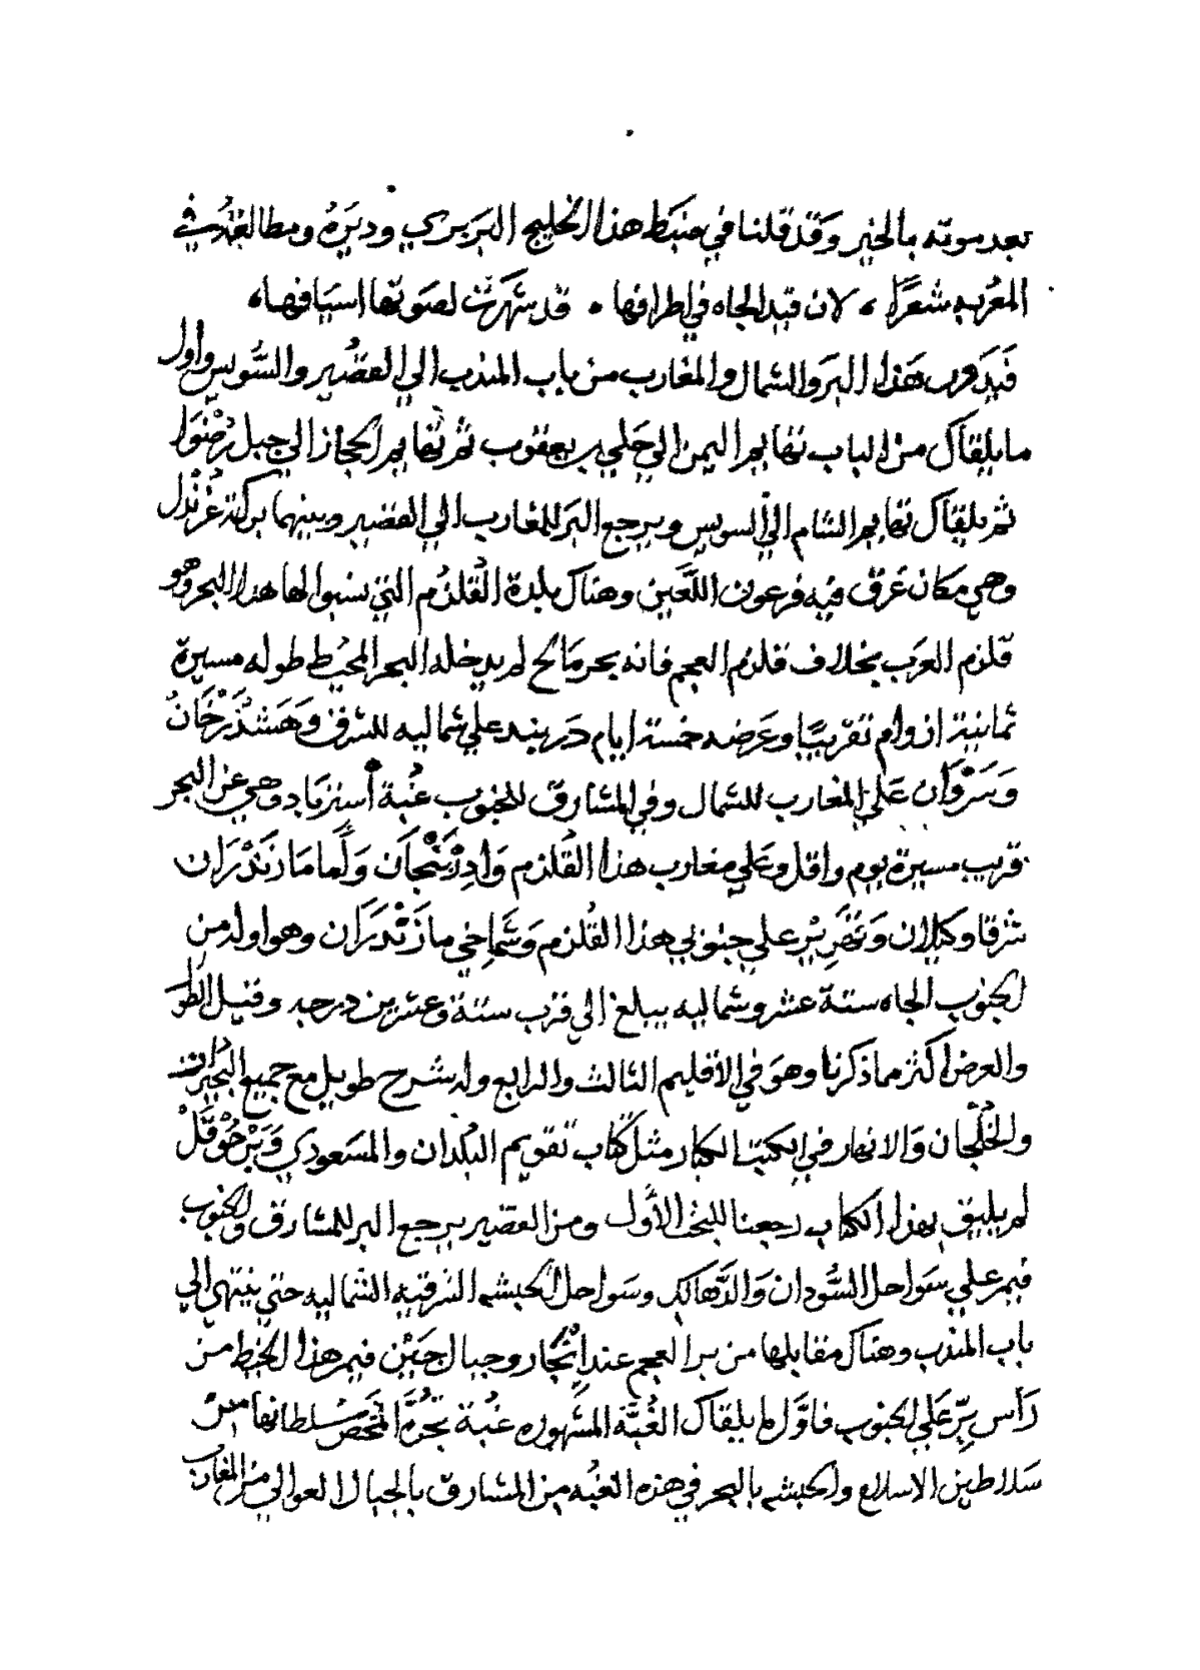 بعد موته بالخير وقد قلنا في ضبط هذا الخليج البربري وديرة ومطالقه في
المعربه شعرًا، لان قيد الجاه في اطرافها • قد شهرت لصوتها اسيافها،
فيدور هذا البر والشمال والمغارب من باب المندب الي القصير والسويس واول
ما يلقاك من الباب تهايم اليمن الي حلي بن يعقوب ثم تهايم الحجاز الي جبل رضوا
ثم يلقاك تهايم الشام الي السويس ويرجع البر للمغارب الي القصير وبينهما بركة غرندل
وهي مكان غرق فيه فرعون اللعين وهناك بلدة القلزم التي نسبوا لها هذا البحر وهو
قلزم العرب بخلاف قلزم العجم فانه بحر مالح لم يدخله البحر المحيط طوله مسيرة
ثمانية ازوام تقريبًا وعرضه خمسة ايام دربند علي شماليه للشرق وهشدرخان
وسروان علي المغارب للشمال وفي المشارق للجنوب غبة أسترباد وهي عن البحر
قريب مسيرة يوم واقل وعلي مغارب هذا القلزم وادرنيجان ولما مازندران
شرقا وكيلان وتفريز علي جنوبي هذا القلزم وشماخي مازندران وهو اوله من
الجنوب الجاه ستة عشر وشماليه يبلغ الي قرب ستة وعشرين درجه وقيل الطو
والعرض اكثر مما ذكرنا وهو في الاقليم الثالث والرابع وله شرح طويل مع جميع البحيرات
والخلجان والانهار في الكتب الكبار مثل كتاب تقويم البلدان والمسعودي وبن حوقل
لم يليق بهذا الكتاب رجعنا للبحث الأول ومن القصير يرجع البر للمشارق والجنوب
فيمر علي سواحل السودان والدهالك وسواحل الحبشه الشرقيه الشماليه حتي ينتهي الي
باب المندب وهناك مقابلها من بر العجم عند انجار وجبال جين فيمر هذا الخيط من
رأس بر علي الجنوب فاول ما يلقاك الغبة المشهوره غبة تجرة المخص سلطانها من
سلاطين الاسلام والحبشه بالبحر في هذه الغبه من المشارق بالجبال العوالي من المغارب